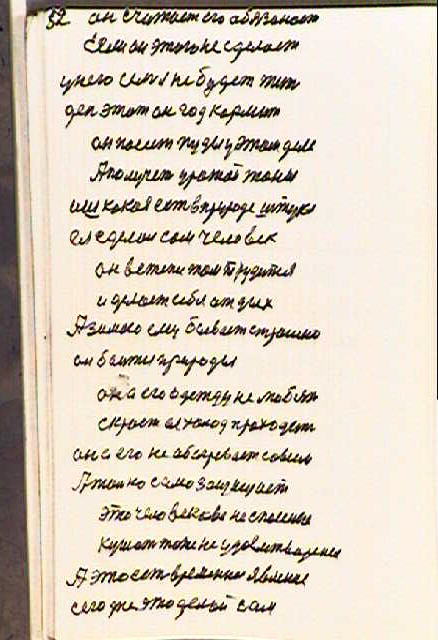 52 он считает его обязаност
Если он этого не сделает
у него семя не будет тет
ден этот он год кормит
он посеит пуды у этом деле
А получет урожай тоны
или какая ест в природе штука
сделан сам человек
он в тепи там трудится
и делает себя отдых
А зимою ему бывает страшно
он боится природы
она его одежду не любит
скрозт ея холод проходет
она его не абогревает совсем
А толко само защищает
это человекова не спасение
Кушат тоже не удовлетварение
А это ест временные явление
сего же это делый сам